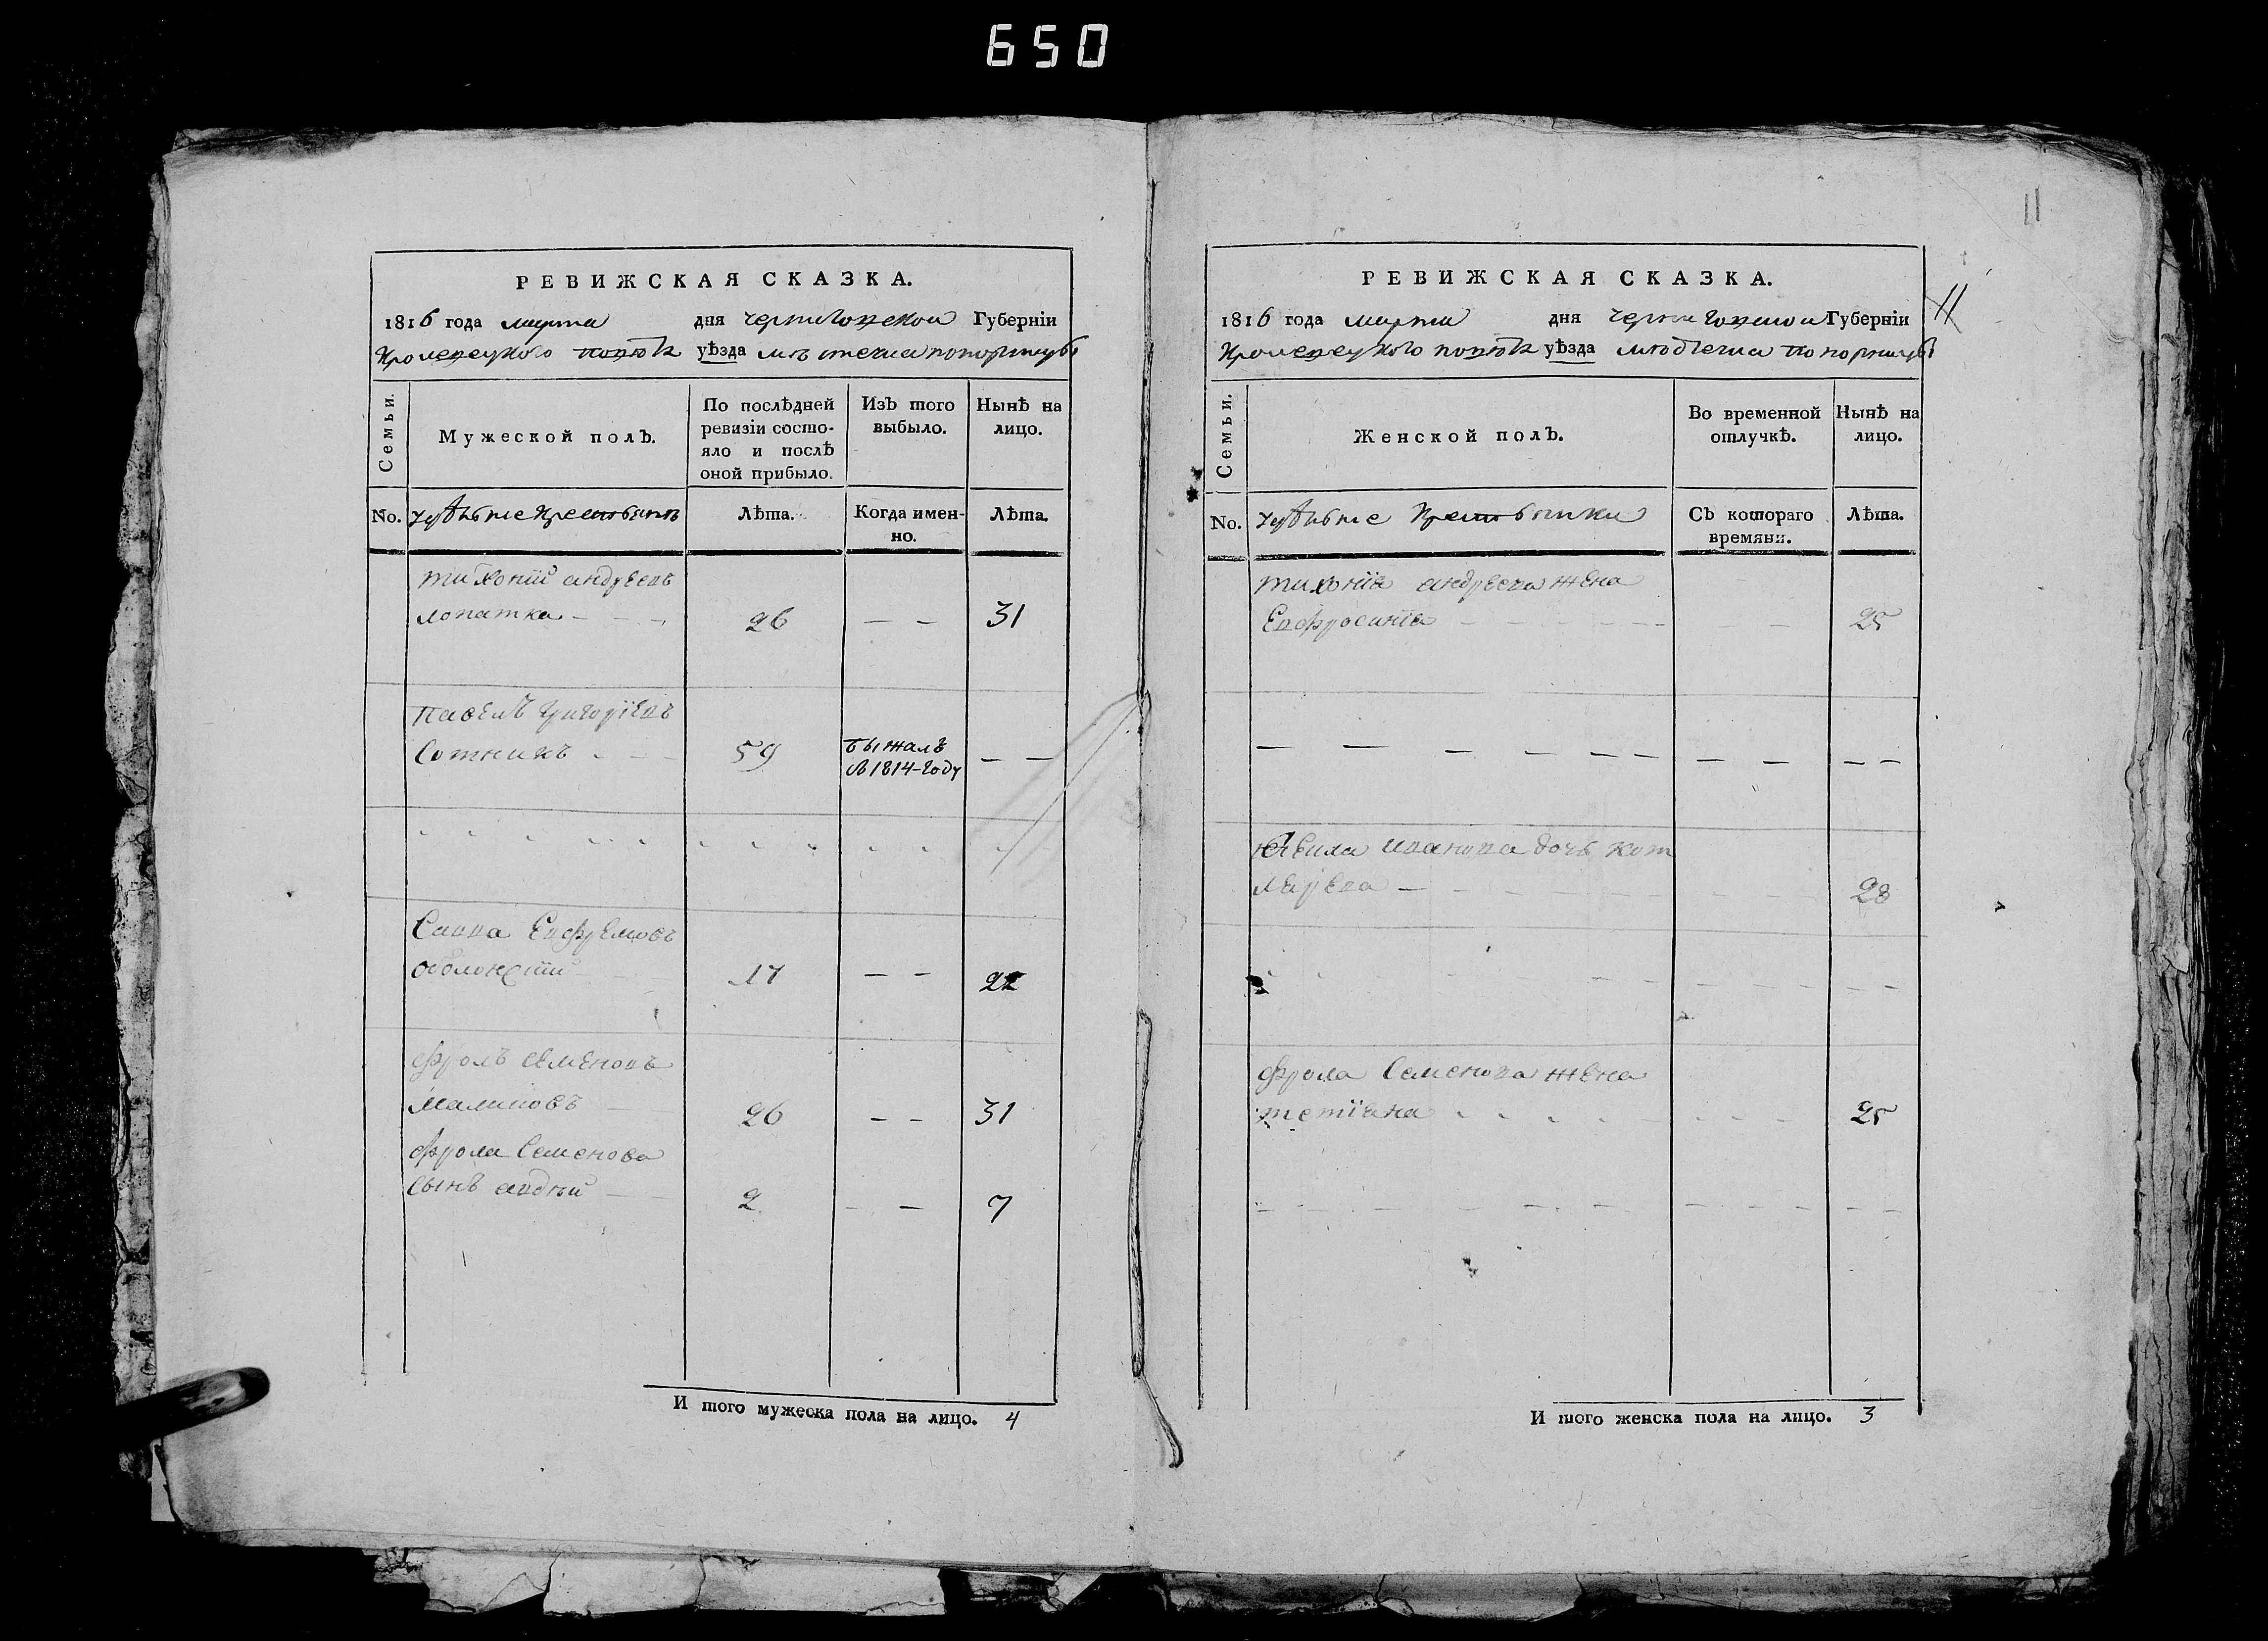 650
11
РЕВИЖСКАЯ СКАЗКА.
1816 года марта дня черниговской Губернїи
Кролевецкого повета уѣзда мѣстечка попорницы
Семьи.
Мужеской полъ.
По послѣдней ревизїи состояло и послѣ оной прибыло.
Изъ того выбыло.
Нынѣ на лицо.
No.
Лѣта.
Когда именно.
Лѣта.
тихонїй андреевъ
лопатка 26 — — 31
Павелъ григорїевъ
Сотникъ 59 бѣжалъ в 1814 году — —
Савва Евфремовъ
оболонскїй 17 — — 22
фролъ семеновъ
Малиновъ 26 — — 31
фрола Семенова
сынъ авдѣй 2 — — 7
И того мужеска пола на лицо. 4
РЕВИЖСКАЯ СКАЗКА.
11
1816 года марта дня черниговской Губернїи
Кролевецкого повета уѣзда мѣстечка попорницы
Семьи.
Женской полъ.
Во временной отлучкѣ.
Нынѣ на лицо.
No.
Съ котораго времяни.
Лѣта.
тихонїя андреева жена
Евфросинїя 25
иванова дочь кот
лярева 28
фрола Семенова жена
тетїана 25
И того женска пола на лицо. 3